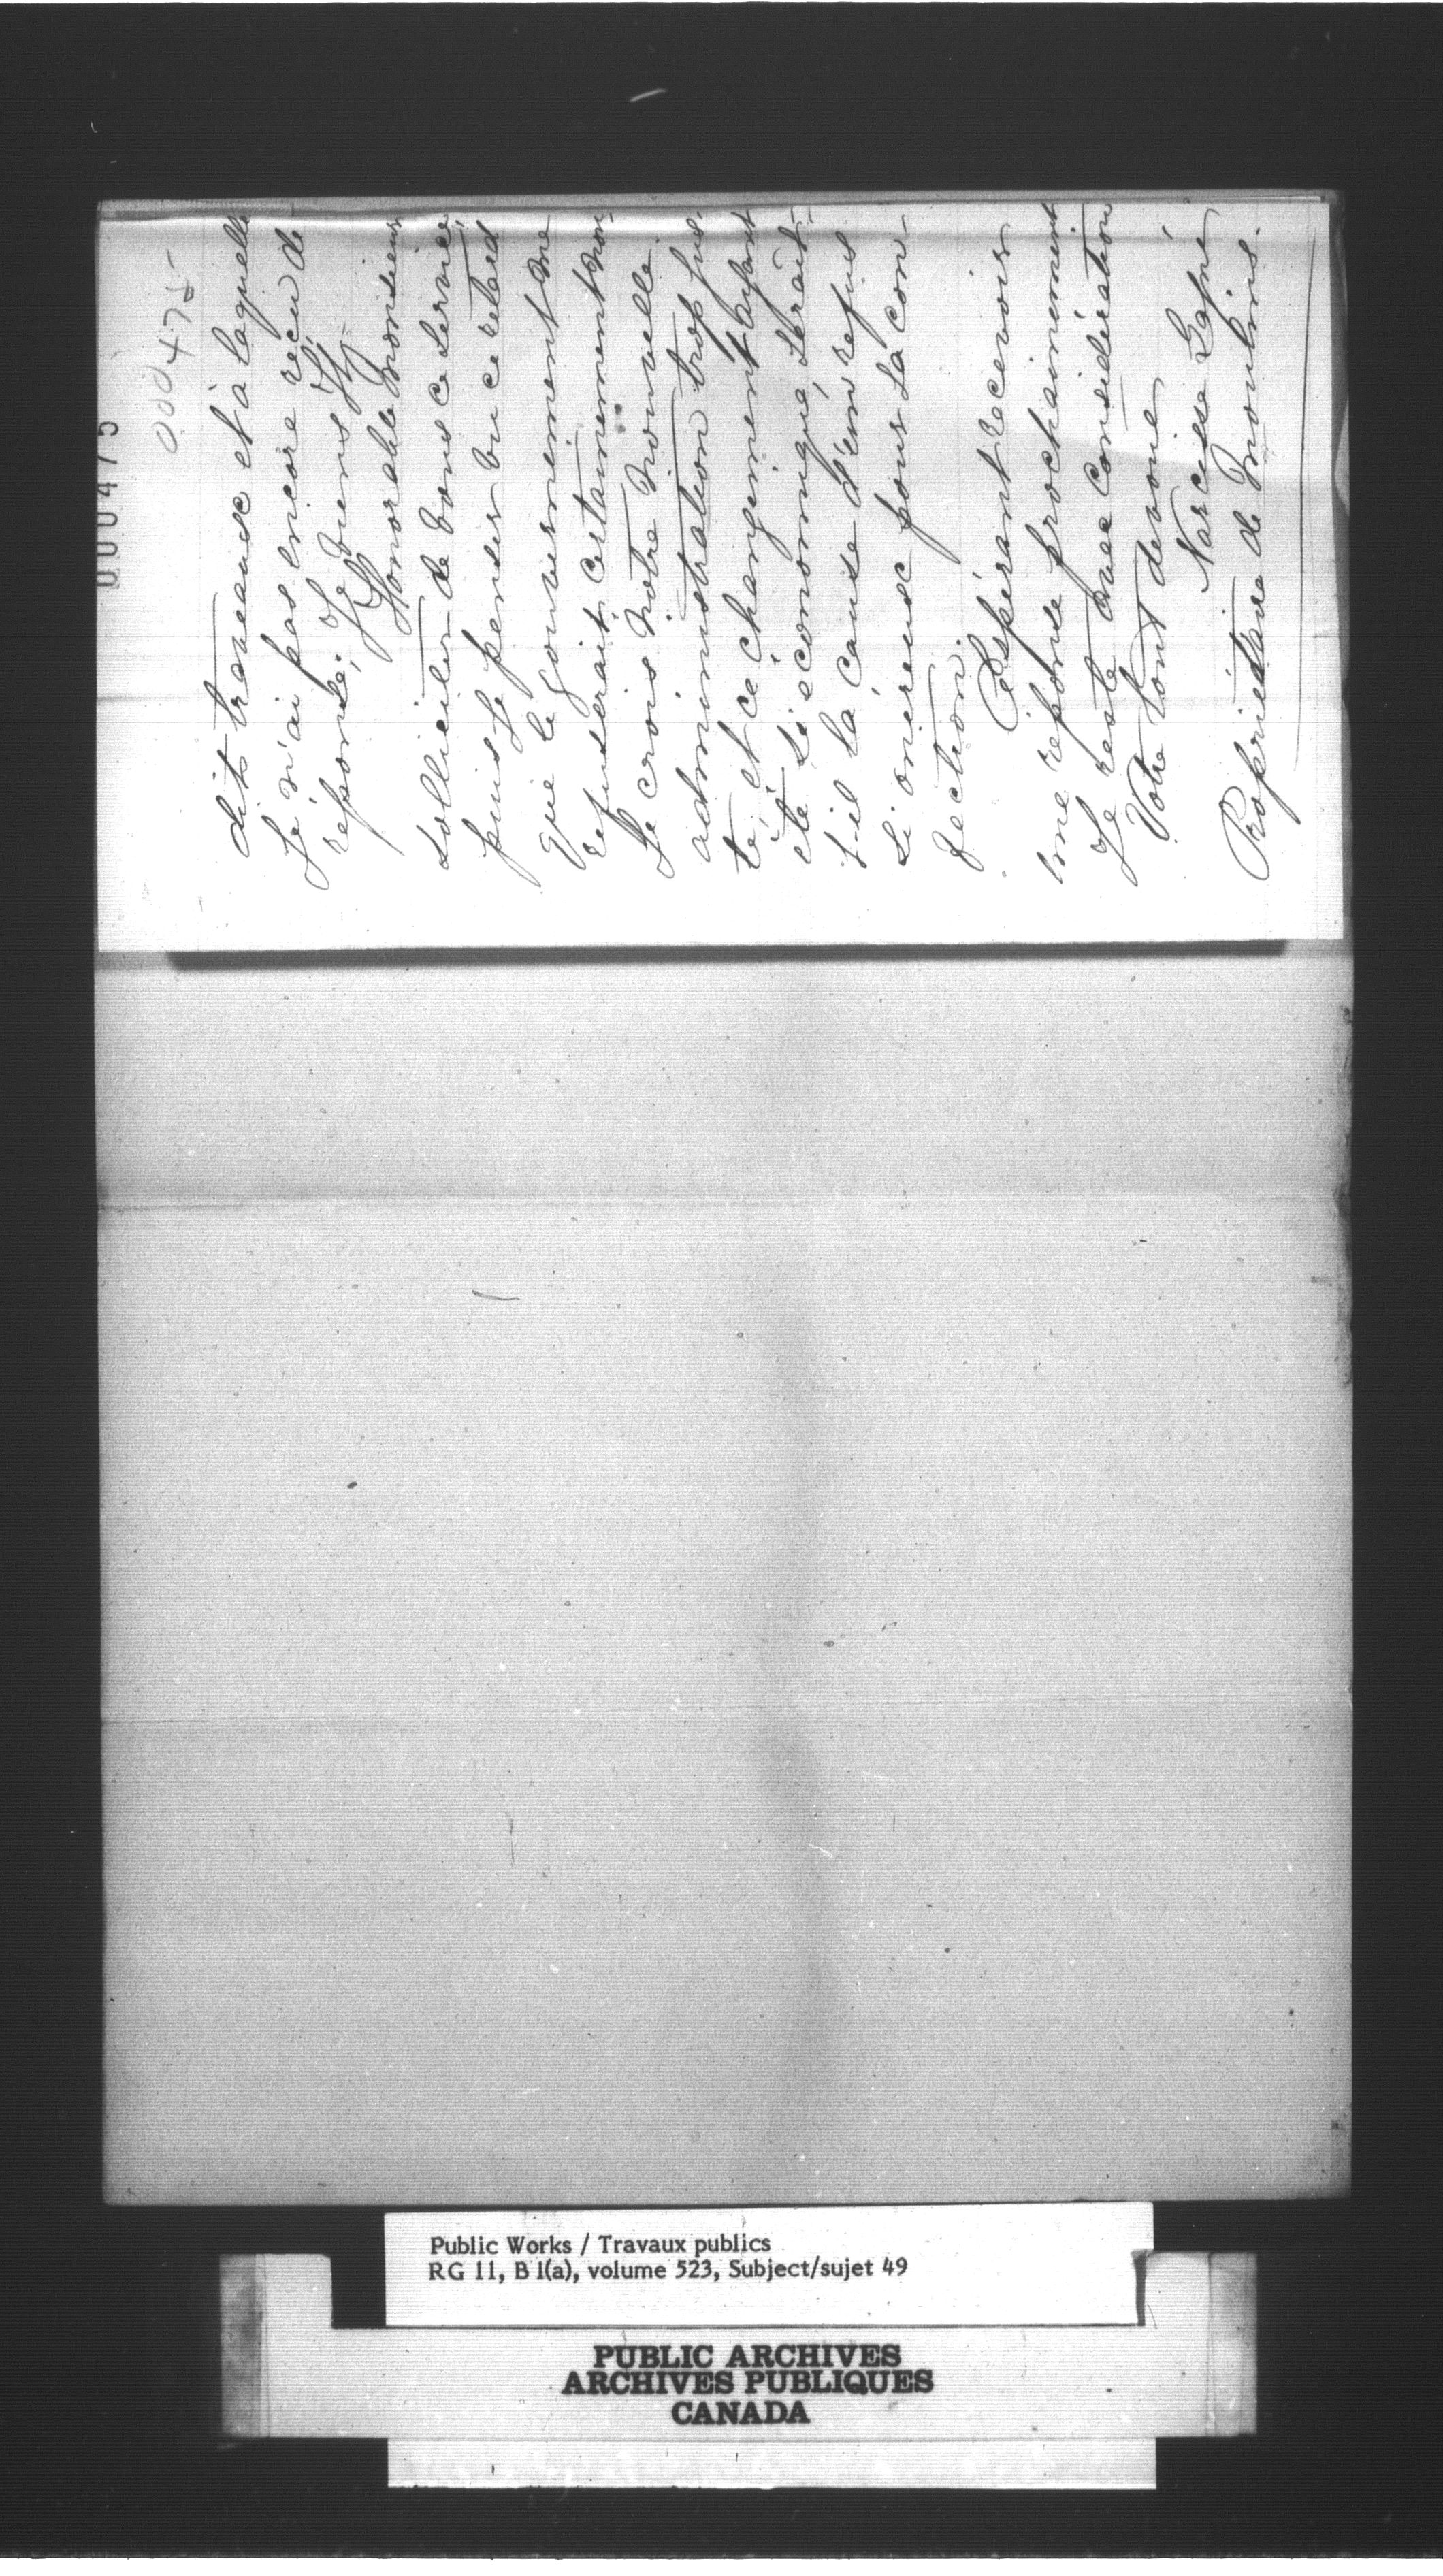 000475
000475
dits traveaux et a laquelle
Je n'ai pas encore recu de
reponse; Je viens Ho
Honorable Monsieur
solliciter de vous ce service
puis Je penser vu ce retard
que le gouvernement me
refuserait certainement non
Je crois notre nouvelle
administration trop jus-
te, et ce changement ayant
été si economique serait-
t-il la cause d'un refus
si onéreux pour sa con-
fection.
Espérant recevoir
une réponse prochainement
Je reste avec considération
Votre tout devoué
Narcisse
Propriétaire de Moulins.
Public Works / Travaux publics
RG 11, B 1(a), volume 523, Subject/sujet 49
PUBLIC ARCHIVES
ARCHIVES PUBLIQUES
CANADA